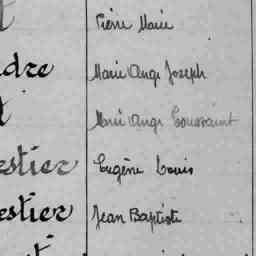 Pierre Marie
dre Marie Ange Joseph
Marie Ange Toussaint
estier Eugène Louis
estier Jean Baptiste